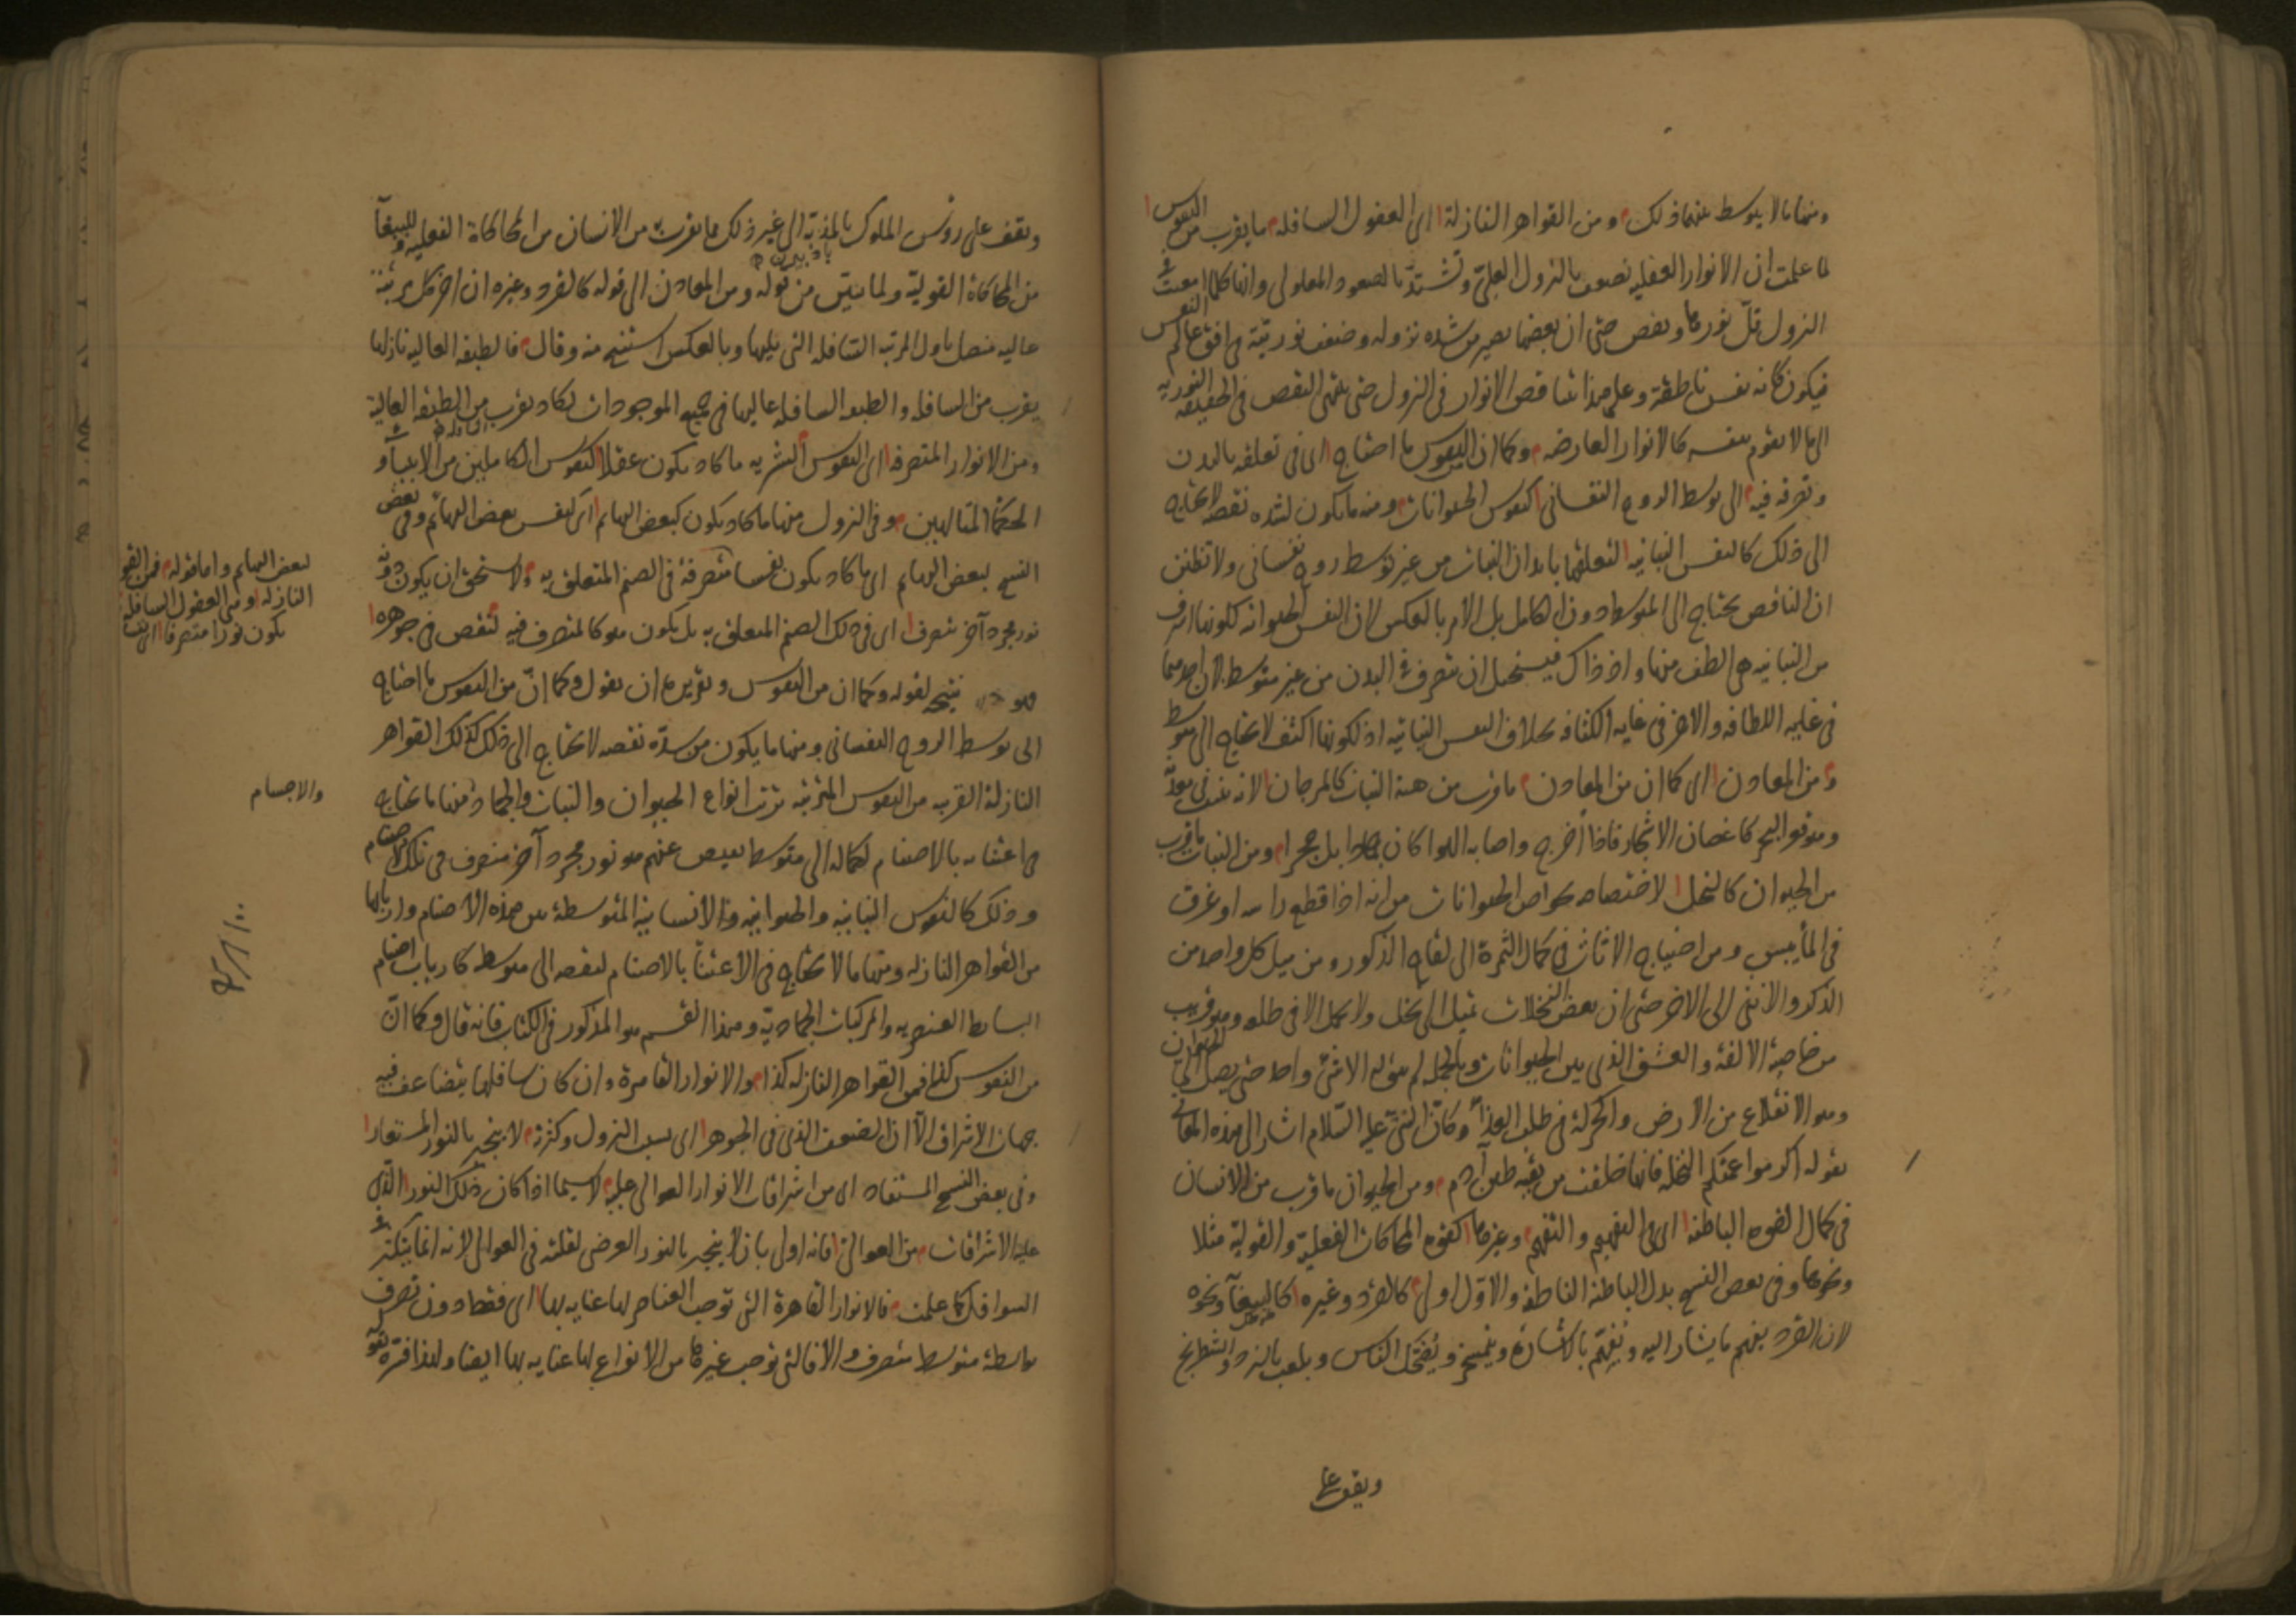 ومنها ما لا يتوسط بينهما ذلك ومن القواهر النازلة اى العقول السافله ما يقرب من النفوس
لما علمت ان الانوار العقليه تضعف بالنزول العلىّ وتشتدّ بالصعود المعلولى وانها كلما امعنت فى
النزول قلّ نورها ونقص حتى ان بعضها يصير من شده نزوله وضعف نوريّته فى افق عالم النفوس
فيكون كانه نفس ناطقة وعلى هذا تتناقص الانوار فى النزول حتى ينتهى النقص فى الحقيقه النوريه
الى ما لا يقوم بنفسه كالانوار العارضه وكما ان من النفوس ما احتاج اى فى تعلقه بالبدن
وتصرفه فيه الى توسط الروح النفسانى كنفوس الحيوانات ومنه ما يكون لشده نقصه لا يحتاج
الى ذلك كالنفس النباتيه لتعلقها بابدان النبات من غير توسط روح نفسانى ولا تظنن
ان الناقص يحتاج الى المتوسط دون الكامل بل الامر بالعكس لان النفس الحيوانيه لكونها اشرف
من النباتيه هى الطف منها واذ ذاك فيستحيل ان يتصرف فى البدن من غير متوسط لان احدهما
فى غايه اللطافه والاخر فى غايه الكثافه بخلاف النفس النباتيه اذ لكونها اكثف لا يحتاج الى متوسط
ومن المعادن اى كما ان من المعادن ما قرب من هيئة النبات كالمرجان لانه ينبت فى معدنه
وهو قعر البحر كاغصان الاشجار فاذا اُخرج واصابه الهوا كان جمادا بل حجرا ومن النبات ما قرب
من الحيوان كالنخل لاختصاصه بخواص الحيوانات من انه اذا قطع راسه او غرق
فى الماء يبس ومن احتياج الاناث فى كمال الثمرة الى لقاح الذكور ومن ميل كل واحد من
الذكر والانثى الى الاخر حتى ان بعض النخلات تميل الى نخل ولا تحمل الا من طلعه وهو قريب
من خاصية الالفة والعشق الذى بين الحيوانات وبالجملة لم يبق له الا شئ واحد حتى يصل الى الحيوان
وهو الانقلاع من الارض والحركة فى طلب الغذاء وكانّ النبىّ عليه السّلام اشار الى هذه المعانى
بقوله اكرموا عمتكم النخله فانها خلقت من بقيه طين آدم ومن الحيوان ما قرب من الانسان
فى كمال القوه الباطنه اى فى التفهيم والتفهم وغيرها كقوه المحاكات الفعليّة والقوليّة مثلا
ونحوها وفى بعض النسخ بدل الباطنه الناطقه والاوّل اولى كالقرد وغيره كالببغاء ونحوه
لان القرد يفهم ما يشار اليه ويُفهّم بالاشارة ويتمسخر ويُضحك الناس ويلعب بالنرد والشطرنج
ويقف على
ويقف على رؤس الملوك بالمذبّة الى غير ذلك مما يقرب من الانسان من المحاكاة الفعليه وللببغاء
من المحاكاة القوليّة ولما تبيّن من قوله ومن المعادن الى قوله كالقرد وغيره ان اخر كل مرتبة
عاليه متصل باول المرتبه السّافله التى يليها وبالعكس استنتج منه وقال فالطبقه العاليه نازلها
يقرب من السافله والطبقه السافله عاليها فى جميع الموجودات يكاد يقرب من الطبقه العالية
ومن الانوار المتصرفه اى النفوس البشريه ما كاد يكون عقلا كنفوس الكاملين من الانبياء و
الحكما المتالهين وفى النزول منها ما كاد يكون كبعض البهايم اى كنفس بعض البهائم وفى بعض
النسخ لبعض البهايم اى ما كاد يكون نفسا متصرفة فى الصنم المتعلق به ولا يستحق ان يكون دونه
نور مجرد آخر متصرف اى فى ذلك الصنم المتعلق به بل يكون هو كالمتصرف فيه لنقص فى جوهره
نتيجه لقوله وكما ان من النفوس وتقريره ان يقول وكما انّ من النفوس ما احتاج
الى توسط الروح النفسانى ومنها ما يكون من شدّة نقصه لا يحتاج الى ذلك كذلك القواهر
النازلة القريبه من النفوس المترتبه ترتب انواع الحيوان والنبات والجماد منها ما يحتاج
فى اعتنايه بالاصنام لكماله الى متوسط يفيض عنهم هو نور مجرد آخر متصرف فى تلك الاصنام
وذلك كالنفوس النباتيه والحيوانيه والانسانيه المتوسطة بين هذه الاصنام واربابها
من القواهر النازله ومنها ما لا يحتاج فى الاعتناء بالاصنام لنقصه الى متوسط كارباب اصنام
البسايط العنصريه والمركبات الجماديّة وهذا القسم هو المذكور فى الكتاب فانه قال وكما انّ
من النفوس كذا فمن القواهر النازله كذا والانوار القاهرة وان كان سافلها يتضاعف فيه
جهات الاشراق الّا ان الضعف الذى فى الجوهر اى بسبب النزول وكثرته لا ينجبر بالنور المستعار
وفى بعض النسخ المستفاد اى من اشراقات الانوار العوالى عليه لا سيما اذا كان ذلك النور الذى
عليه الاشراقات من العوالى فانه اولى بان لا ينجبر بالنور العرضى لقلته فى العوالى لانه انما يتكثر فى
السوافل كما علمت فالانوار القاهرة التى توجب العناصر لها عنايه بها اى فقط دون تصرف
بواسطة متوسط متصرف والا فالتى توجب غيرها من الانواع لها عنايه بها ايضا ولهذا فسّره بقوله
لبعض البهايم واما قوله فمن القواهر
النازلة وهى العقول السافله
يكون نورا متصرفا
والاجسام